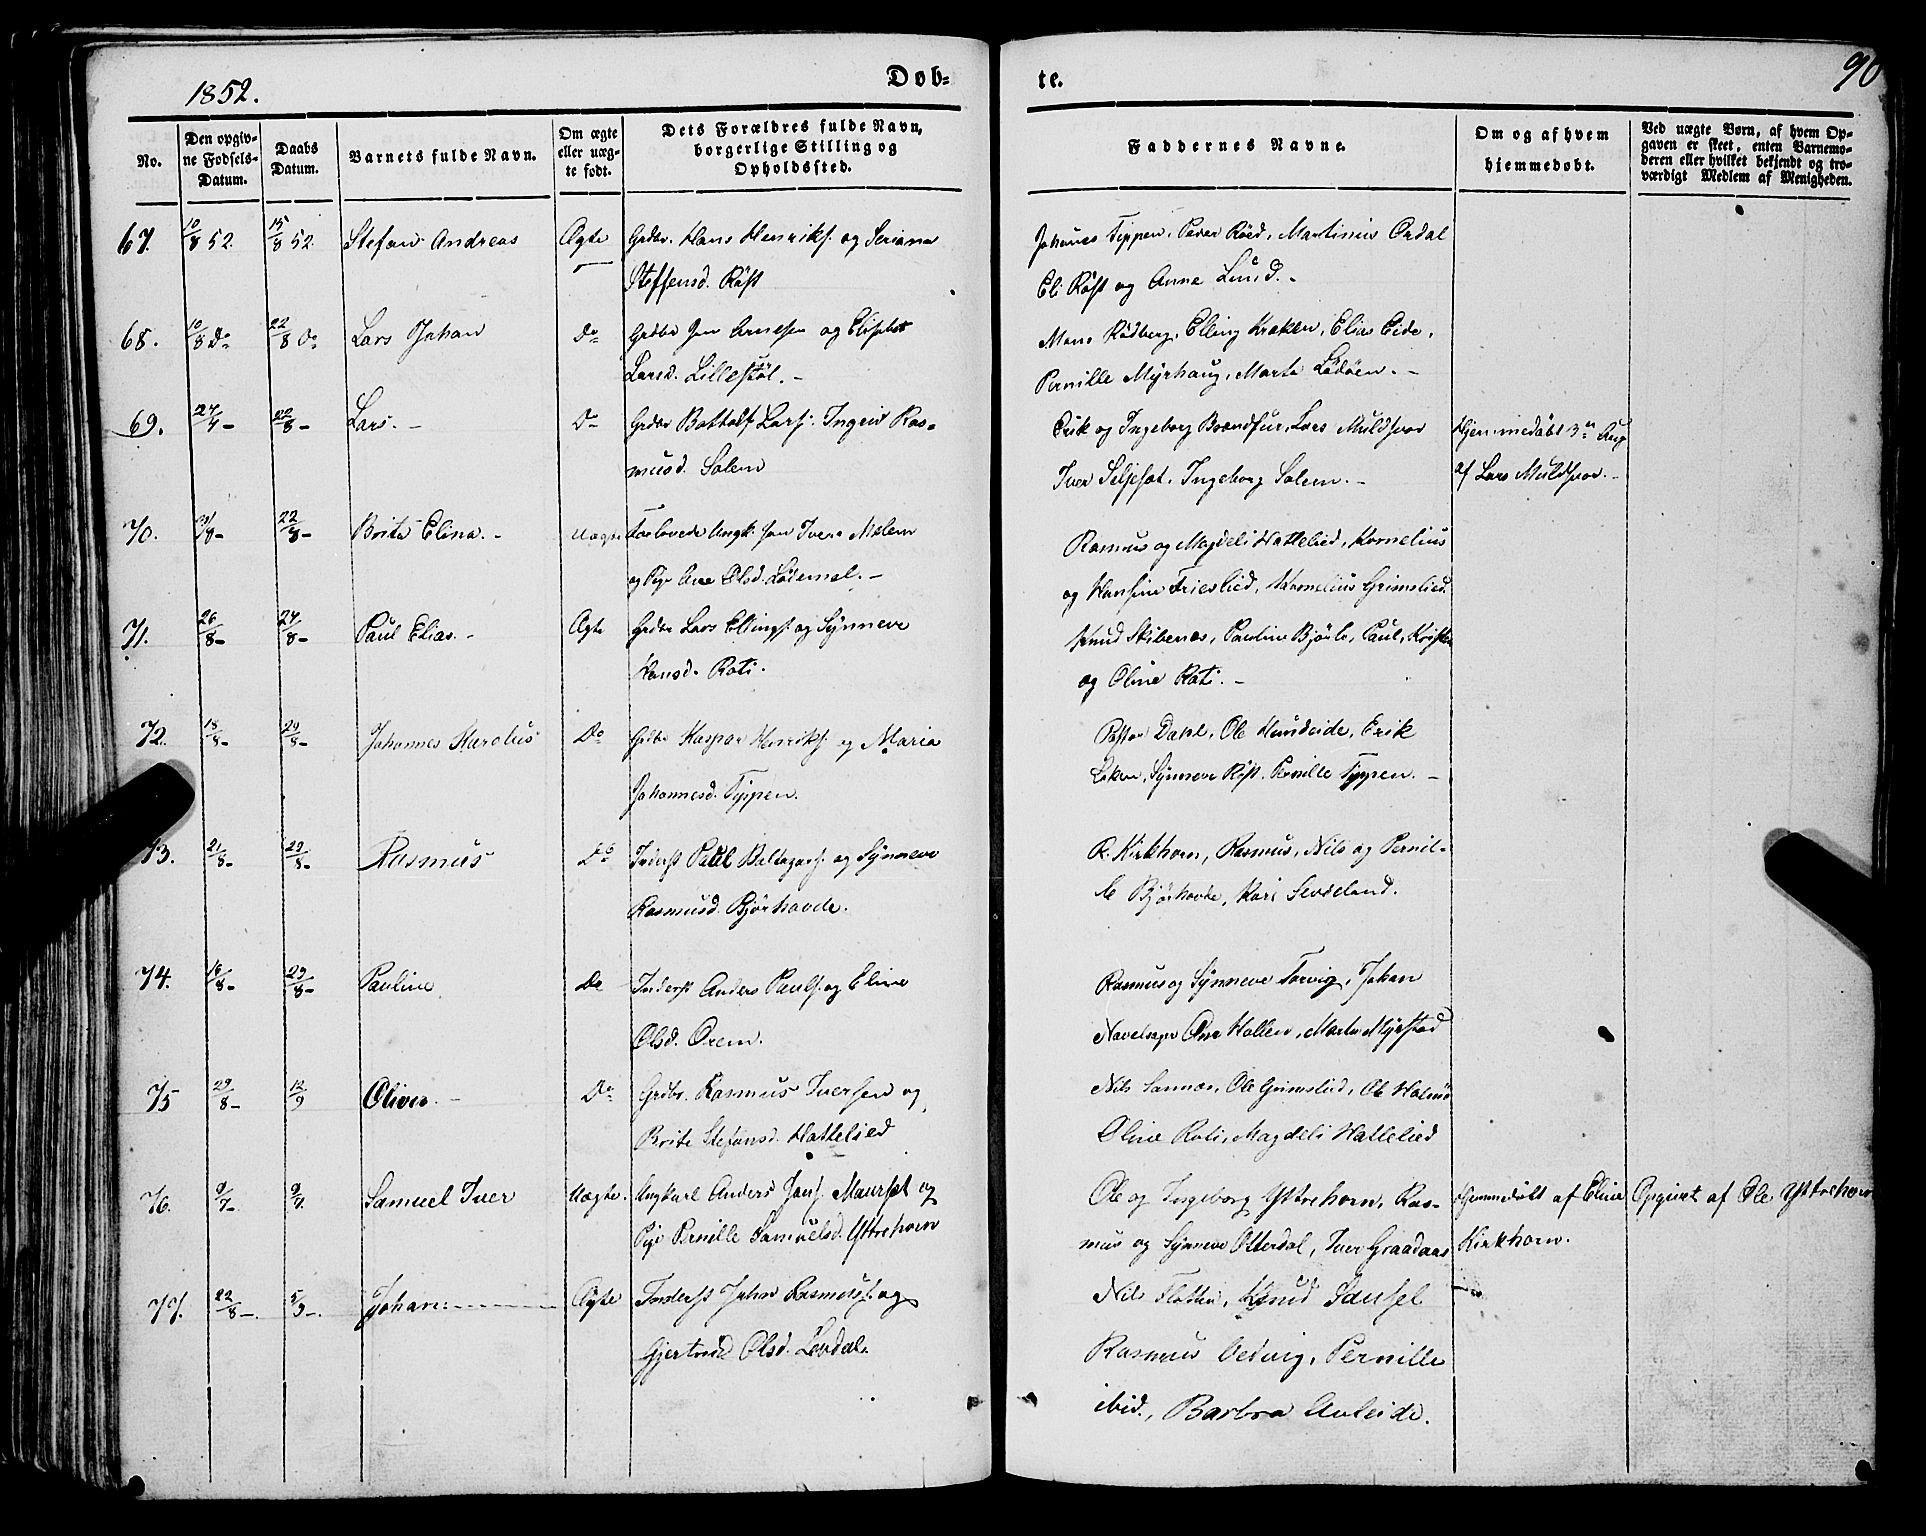 1852.
Døb-
te.
90
No.
Den opgiv-
ne Fødsels-
Datum.
Daabs
Datum.
Barnets fulde Navn.
Om ægte
eller uæg-
te født.
Dets Forældres fulde Navn,
borgerlige Stilling og
Opholdssted.
Faddernes Navne.
Om og af hvem
hjemmedøbt.
Ved uægte Børn, af hvem Op-
gaven er skeet, enten Barnemo-
deren eller hvilket bekjendt og tro-
værdigt Medlem af Menigheden.
67. 10/8 52. 15/8 52. Stefan Andreas Ægte Grdbr. Hans Henriks. og Seriana
Steffensd. Røst
Johanes Tippen, Peder Røed, Martinus Ordal
Eli Røst og Anne Lund.-
68. 10/8 Do 22/8 Do Lars Johan Do Grdbr Jon Arnesen og Elisabet
Larsd. Lillestøl.-
Mons Rødberg, Elling Kraken, Elias Eide,
Pernille Myrhaug, Marte Lødøen.-
69. 22/8 - Lars.- Do Grdbr Bottolf Lars. Ingrid Ras-
musd. Solem
Erik og Ingeborg Brandsur, Lars Muldsvor
Iver Seljeset, Ingeborg Solem.-
Hjemmedøbt 3n Aug
af Lars Muldsvor.-
70. 22/8 - Brite Elina.- Uægte Forlovede Ungk. Jon Ivers. Mælem
og Pige Ane Olsd. Lødemel.-
Rasmus og Magdeli Hattelied, Kornelius
og Hansine Frieslied, Kornelius Grimslied
71. 26/8 - 24/8 - Paul Elias.- Ægte Grdbr Lars Ellings. og Synneve
Hansd. Roti.
Knud Skibenes, Pauline Bjørlo, Paul, Kristen
og Oline Roti.-
72. 18/8 - 29/8 - Johannes Karolus Do Grdbr Kaspar Henriks. og Maria
Johannesd. Typpen.
Pastor Dahl, Ole Hundeide, Erik
Løken, Synneve Røst, Pernille Typpen.-
73. 21/8 - 29/8 - Rasmus Do Inderst Paul Baltazars. og Synneve
Rasmusd. Bjørhovde.
R. Kirkhorn, Rasmus, Nils og Pernil-
le Bjørhovde, Kari Levdeland.
74. 16/8 - 29/8 - Pauline Do Inderst Anders Pauls. og Eline
Olsd. Ørem.
Rasmus og Synneve Torvig, Johan
Navelsager Ane Hallen, Marte Myrstad
75 29/8 - 12/9 Oliver.- Do Grdbr. Rasmus Iversen og
Brite Stefansd. Hattelied
Nils Sannæs, Ole Grimslied, Ole Holmø
Oline Roti, Magdeli Hattelied
76. 9/7 - Samuel Iver Uægte. Ungkarl Anders Jons. Maurset og
Pige Pernille Samuelsd. Yttrehorn
Ole og Ingeborg Yttrehorn, Ras-
mus og Synneve Otterdal, Iver Graadaas
Hjemmedøbt af Eline
Kirkhorn.
Opgivet af Ole Yttrehorn
77. 22/8 -. 5/9 -. Johan Ægte Inderst John Rasmus. og
Gjertrud Olsd. Levdal.
Nils Flotten, Knud Sausel
Rasmus Vedvig, Pernille
ibid., Barbra Auleide.